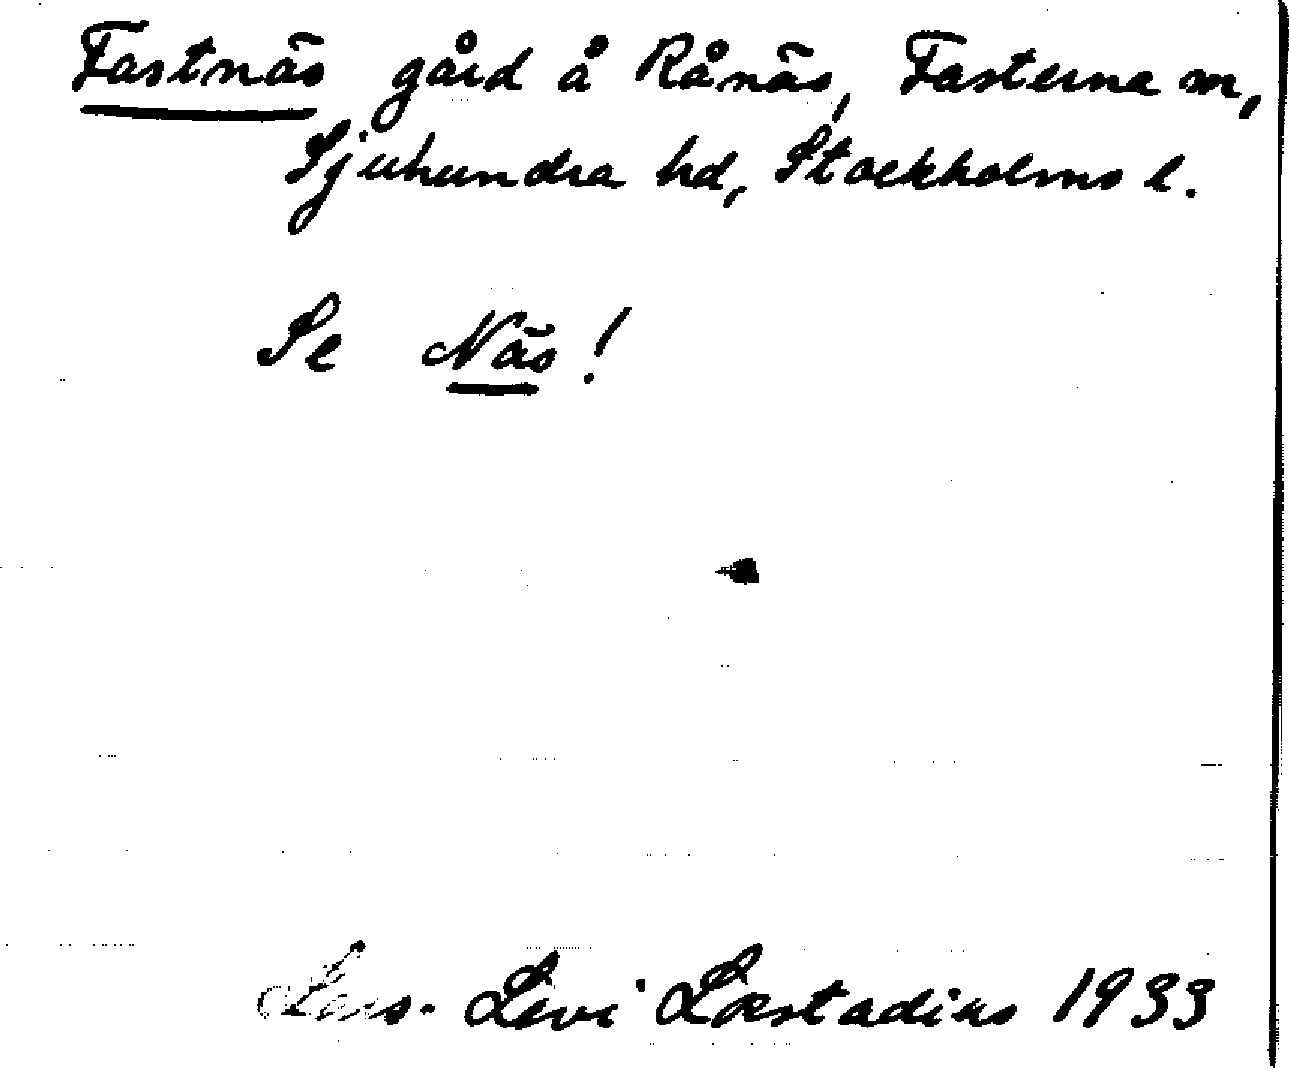 Fastnäs gård å Rånäs, Fasterna sn,
Sjuhundra hd, Stockholms l.
Se Näs!
Lars-Levi Læstadius 1933